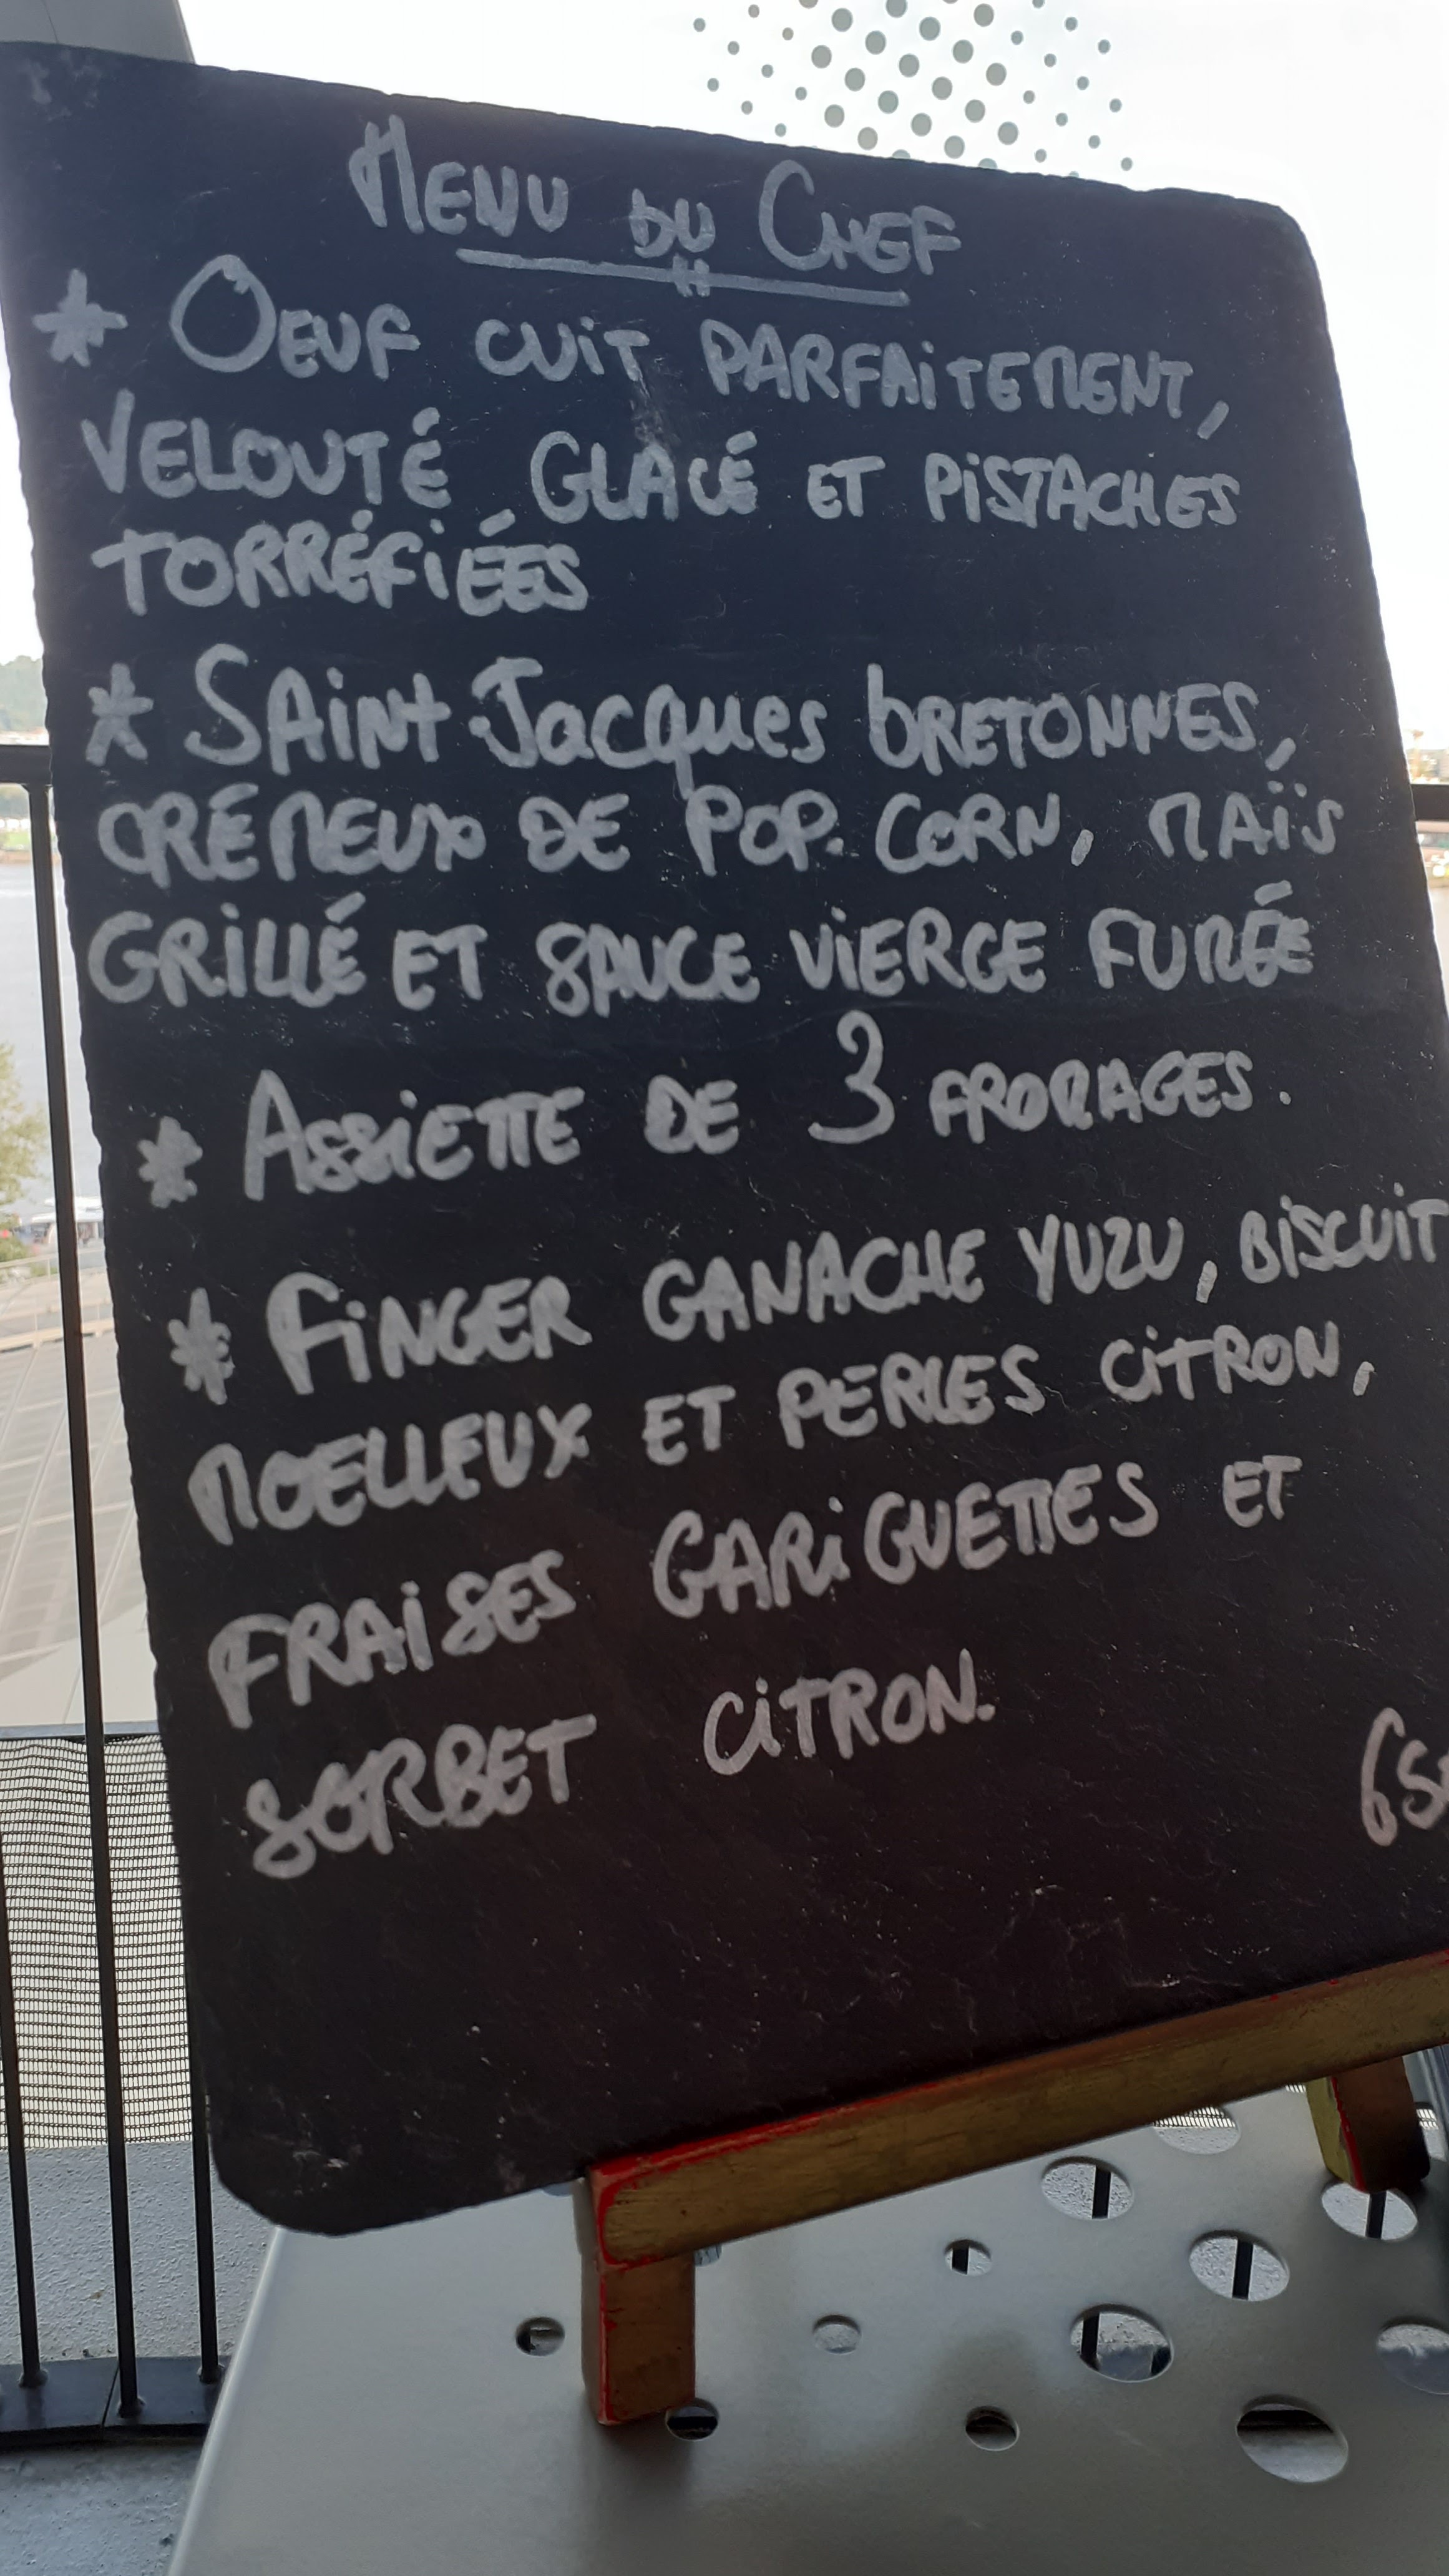 MENU DU CHEF
* OEUF CUIT PARFAITEMENT,
VELOUTÉ GLACÉ ET PISTACHES
TORRÉFIÉES
* SAINT-Jacques BRETONNES,
CRÉMEUX DE POP-CORN, MAÏS
GRILLÉ ET SAUCE VIERGE FUMÉE
* ASSIETTE DE 3 FROMAGES.
* FINGER GANACHE YUZU, BISCUIT
MOELLEUX ET PERLES CITRON,
FRAISES GARIGUETTES ET
SORBET CITRON.